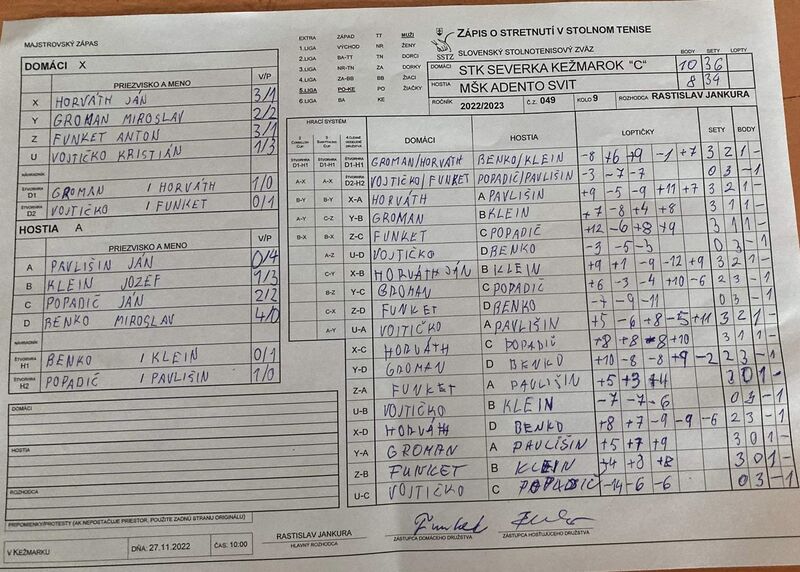 MAJSTROVSKÝ ZÁPAS
EXTRA ZÁPAD TT MUŽI
1.LIGA VÝCHOD NR ŽENY
2.LIGA BA-TT TN DORCI
3.LIGA NR-TN ZA DORKY
4.LIGA ZA-BB BB ŽIACI
5.LIGA PO-KE PO ŽIAČKY
6.LIGA BA KE
SSTZ
ZÁPIS O STRETNUTÍ V STOLNOM TENISE
SLOVENSKÝ STOLNOTENISOVÝ ZVÄZ
BODY SETY LOPTY
DOMÁCI STK SEVERKA KEŽMAROK "C" 10 36
HOSTIA MŠK ADENTO SVIT 8 34
ROČNÍK 2022/2023 Č.Z. 049 KOLO 9 ROZHODCA RASTISLAV JANKURA
DOMÁCI X
PRIEZVISKO A MENO V/P
X HORVÁTH JÁN 3/1
Y GROMAN MIROSLAV 2/2
Z FUNKET ANTON 3/1
U VOJTIČKO KRISTIÁN 1/3
NÁHRADNÍK
ŠTVORHRA D1 GROMAN / HORVÁTH 1/0
ŠTVORHRA D2 VOJTIČKO / FUNKET 0/1
HOSTIA A
PRIEZVISKO A MENO V/P
A PAVLIŠIN JÁN 0/4
B KLEIN JOZEF 1/3
C POPADIČ JÁN 2/2
D BENKO MIROSLAV 4/0
NÁHRADNÍK
ŠTVORHRA H1 BENKO / KLEIN 0/1
ŠTVORHRA H2 POPADIČ / PAVLIŠIN 1/0
DOMÁCI
HOSTIA
ROZHODCA
PRIPOMIENKY/PROTESTY (AK NEPOSTAČUJE PRIESTOR, POUŽITE ZADNÚ STRANU ORIGINÁLU)
V KEŽMARKU DŇA: 27.11.2022 ČAS: 10:00
HRACÍ SYSTÉM DOMÁCI HOSTIA LOPTIČKY SETY BODY
ŠTVORHRA D1-H1 ŠTVORHRA D1-H1 ŠTVORHRA D1-H1 GROMAN/HORVÁTH BENKO/KLEIN -8 +6 +9 -1 +7 3 2 1 -
A-X A-X ŠTVORHRA D2-H2 VOJTIČKO/FUNKET POPADIČ/PAVLIŠIN -3 -7 -7 0 3 - 1
B-Y B-Y X-A HORVÁTH A PAVLIŠIN +9 -5 -9 +11 +7 3 2 1 -
A-Y C-Z Y-B GROMAN B KLEIN +7 -8 +4 +8 3 1 1 -
B-X B-X Z-C FUNKET C POPADIČ +12 -6 +8 +9 3 1 1 -
A-Z U-D VOJTIČKO D BENKO -3 -5 -3 0 3 - 1
C-Y X-B HORVÁTH JÁN B KLEIN +9 +1 -9 -12 +9 3 2 1 -
B-Z Y-C GROMAN C POPADIČ +6 -3 -4 +10 -6 2 3 - 1
C-X Z-D FUNKET D BENKO -7 -9 -11 0 3 - 1
A-Y U-A VOJTIČKO A PAVLIŠIN +5 -6 +8 -5 +11 3 2 1 -
X-C HORVÁTH C POPADIČ +8 +8 -8 +10 3 1 1 -
Y-D GROMAN D BENKO +10 -8 -8 +9 -2 2 3 - 1
Z-A FUNKET A PAVLIŠIN +5 +3 +4 3 0 1 -
U-B VOJTIČKO B KLEIN -7 -7 -6 0 3 - 1
X-D HORVÁTH D BENKO +8 +7 -9 -9 -6 2 3 - 1
Y-A GROMAN A PAVLIŠIN +5 +7 +9 3 0 1 -
Z-B FUNKET B KLEIN +4 +8 +8 3 0 1 -
U-C VOJTIČKO C POPADIČ -14 -6 -6 0 3 - 1
RASTISLAV JANKURA
HLAVNÝ ROZHODCA
ZÁSTUPCA DOMÁCEHO DRUŽSTVA
ZÁSTUPCA HOSŤUJÚCEHO DRUŽSTVA